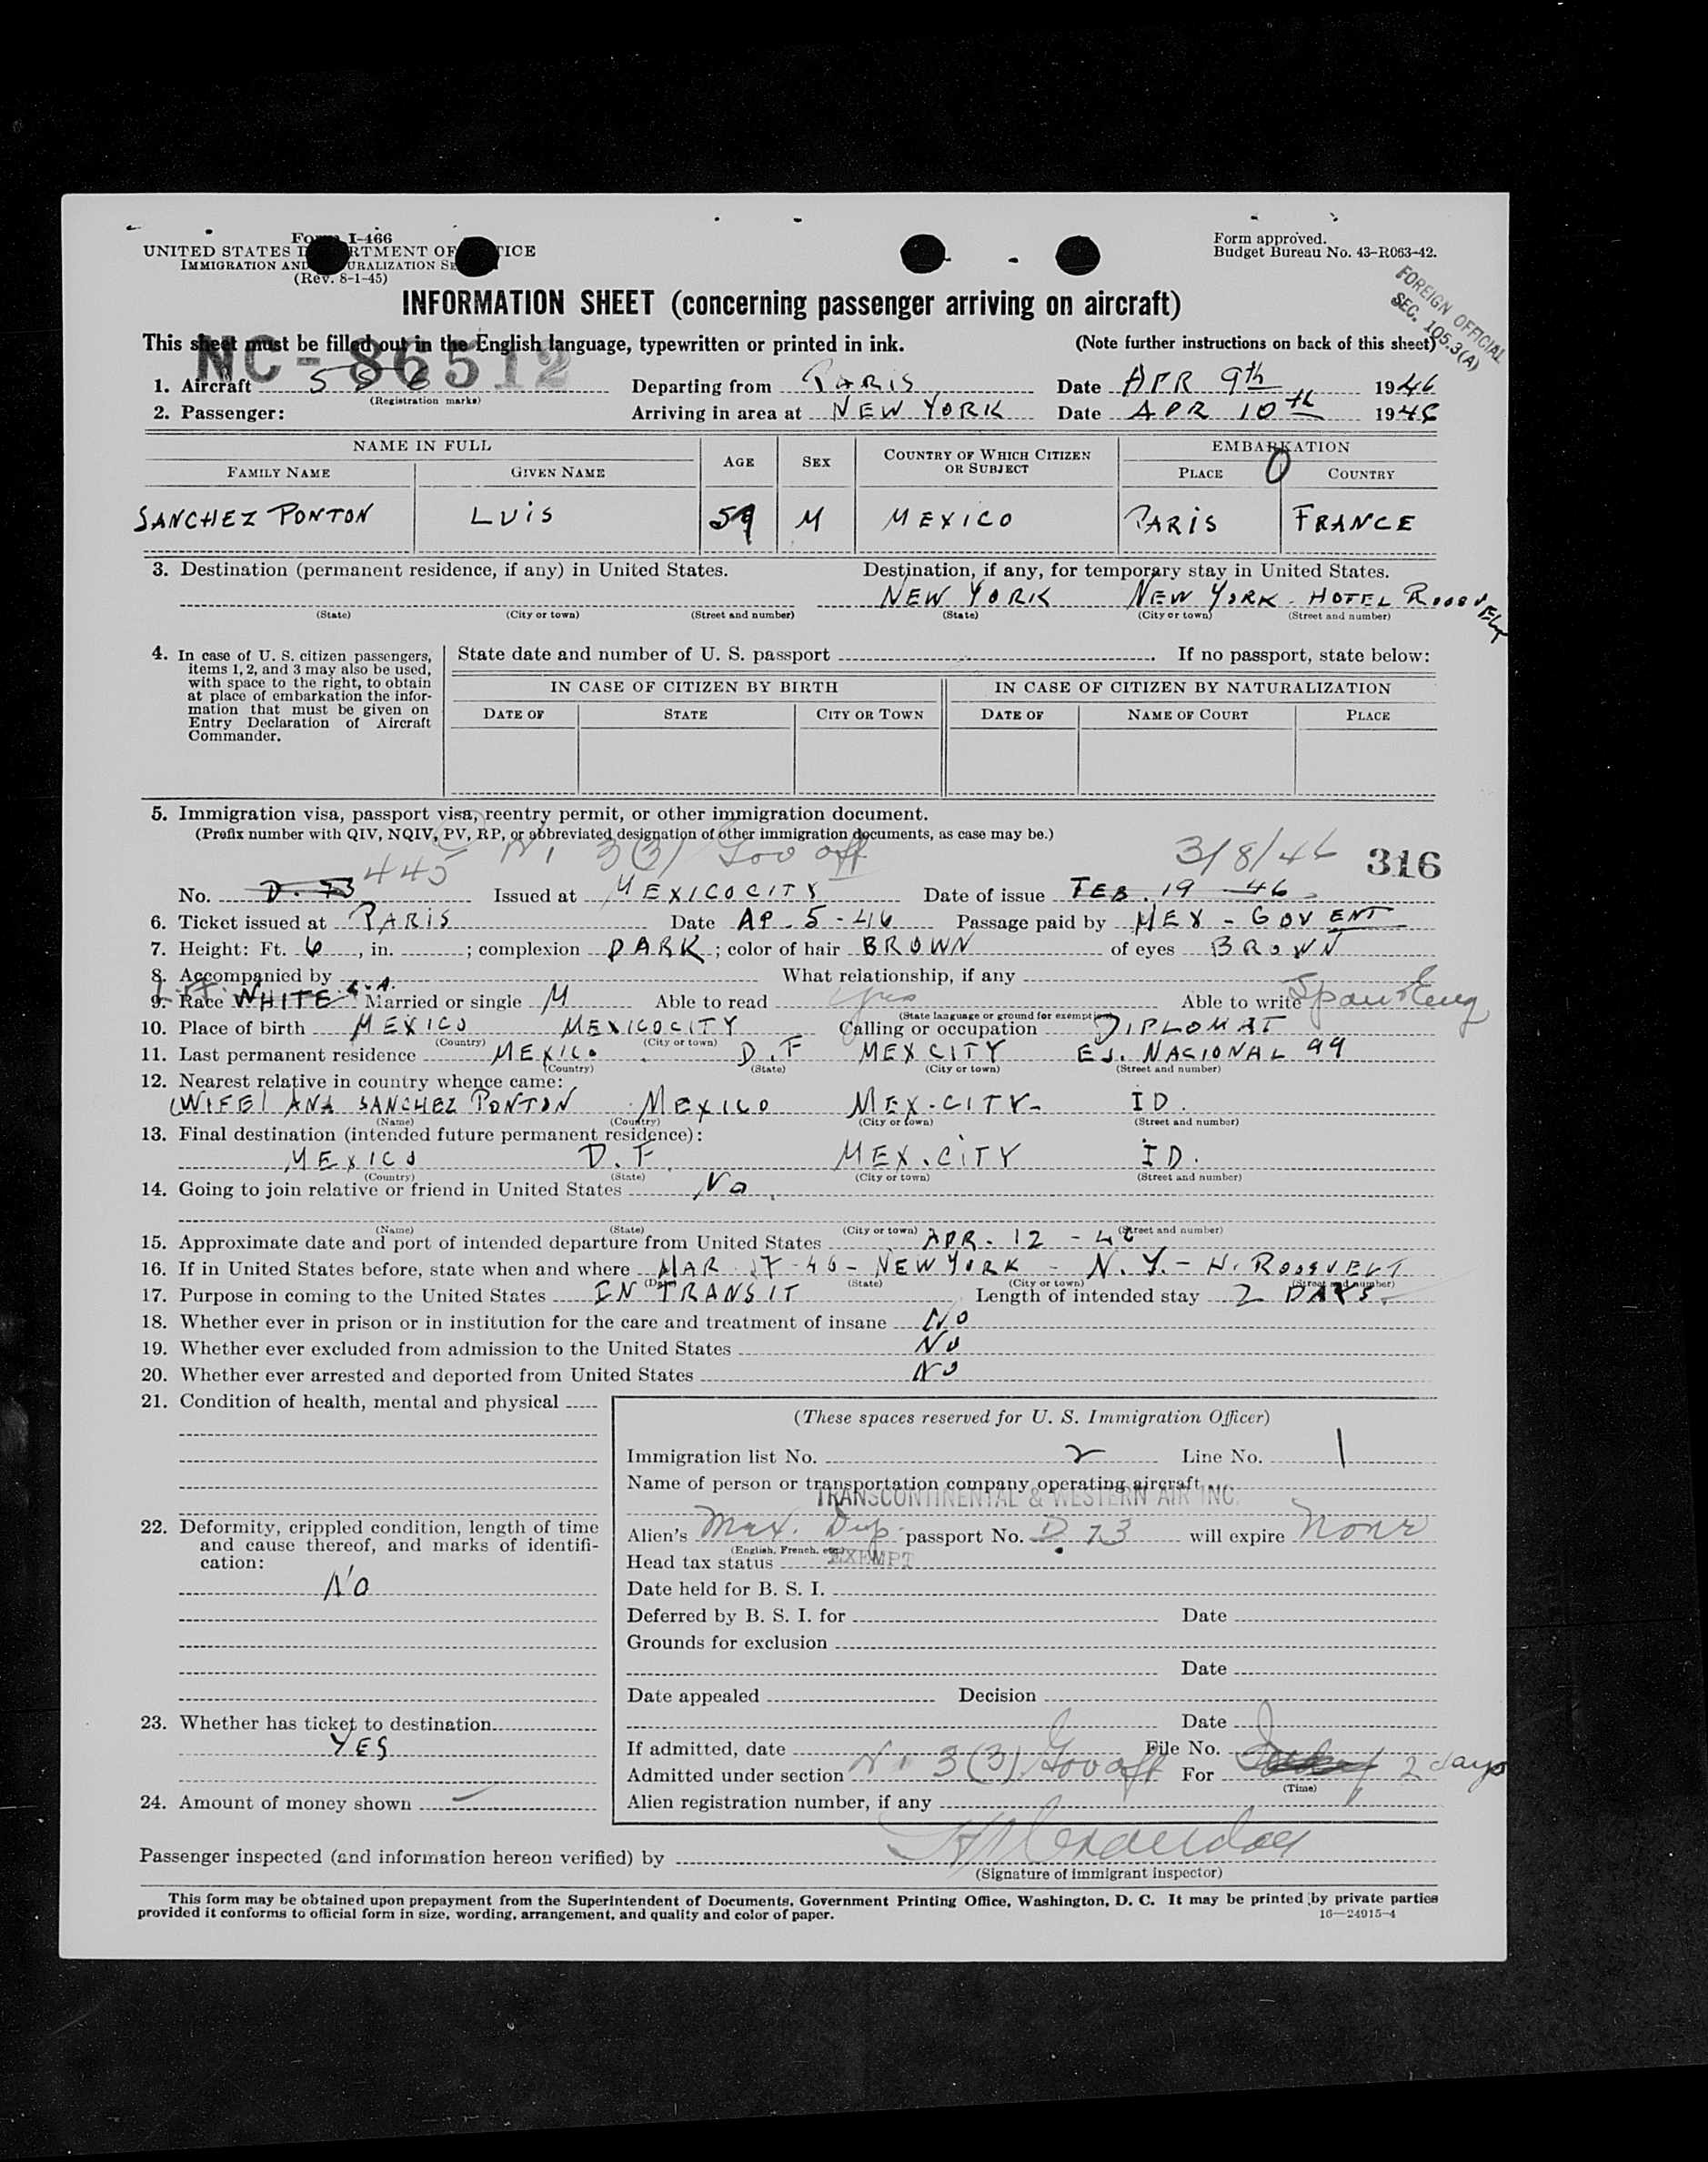 Form I-466
UNITED STATES DEPARTMENT OF JUSTICE
IMMIGRATION AND NATURALIZATION SE
(Rev. 8-1-45)
Form approved.
Budget Bureau No. 43-R063-42.
FOREIGN OFFICIAL
SEC. 105.3(A)
INFORMATION SHEET (concerning passenger arriving on aircraft)
This sheet must be filled out in the English language, typewritten or printed in ink. (Note further instructions on back of this sheet)
NC-86512
1. Aircraft (Registration marks) Departing from PARIS Date APR 9th 1946
2. Passenger: Arriving in area at NEW YORK Date APR 10th 1946
NAME IN FULL AGE SEX COUNTRY OF WHICH CITIZEN OR SUBJECT EMBARKATION
FAMILY NAME GIVEN NAME PLACE COUNTRY
SANCHEZ PONTON LUIS 59 M MEXICO PARIS FRANCE
3. Destination (permanent residence, if any) in United States. Destination, if any, for temporary stay in United States.
NEW YORK NEW YORK - HOTEL ROOSVELT
(State) (City or town) (Street and number) (State) (City or town) (Street and number)
4. In case of U. S. citizen passengers, items 1, 2, and 3 may also be used, with space to the right, to obtain at place of embarkation the information that must be given on Entry Declaration of Aircraft Commander.
State date and number of U. S. passport . If no passport, state below:
IN CASE OF CITIZEN BY BIRTH IN CASE OF CITIZEN BY NATURALIZATION
DATE OF STATE CITY OR TOWN DATE OF NAME OF COURT PLACE
5. Immigration visa, passport visa, reentry permit, or other immigration document.
(Prefix number with QIV, NQIV, PV, RP, or abbreviated designation of other immigration documents, as case may be.)
445 3(3) Gov off 3/8/46 316
No. D. 73 Issued at MEXICO CITY Date of issue FEB. 19 - 46
6. Ticket issued at PARIS Date AP. 5 - 46 Passage paid by MEX - GOVENT
7. Height: Ft. 6, in. ; complexion DARK; color of hair BROWN of eyes BROWN
8. Accompanied by What relationship, if any
9. Race WHITE Married or single M Able to read yes Able to write Span & Eng
(State language or ground for exemption)
10. Place of birth MEXICO MEXICO CITY Calling or occupation DIPLOMAT
(Country) (City or town)
11. Last permanent residence MEXICO D.F MEX CITY EJ. NACIONAL 99
(Country) (State) (City or town) (Street and number)
12. Nearest relative in country whence came:
(WIFE) ANA SANCHEZ PONTON MEXICO MEX. CITY- ID.
(Name) (Country) (City or town) (Street and number)
13. Final destination (intended future permanent residence):
MEXICO D.F. MEX. CITY ID.
(Country) (State) (City or town) (Street and number)
14. Going to join relative or friend in United States No.
(Name) (State) (City or town) (Street and number)
15. Approximate date and port of intended departure from United States APR. 12 - 46
16. If in United States before, state when and where MAR 17-46 - NEW YORK - N. Y. - H. ROOSVELT
(Date) (State) (City or town) (Street and number)
17. Purpose in coming to the United States IN TRANSIT Length of intended stay 2 DAYS.
18. Whether ever in prison or in institution for the care and treatment of insane NO
19. Whether ever excluded from admission to the United States NO
20. Whether ever arrested and deported from United States NO
21. Condition of health, mental and physical
22. Deformity, crippled condition, length of time and cause thereof, and marks of identification:
NO
23. Whether has ticket to destination
YES
24. Amount of money shown
(These spaces reserved for U. S. Immigration Officer)
Immigration list No. 2 Line No. 1
Name of person or transportation company operating aircraft
TRANSCONTINENTAL & WESTERN AIR INC.
Alien's Mex. Dip. passport No. D. 73 will expire None
(English, French, etc.)
Head tax status EXEMPT
Date held for B. S. I.
Deferred by B. S. I. for Date
Grounds for exclusion
Date
Date appealed Decision
Date
If admitted, date File No.
Admitted under section 3(3) Gov off For 2 days
(Time)
Alien registration number, if any
Passenger inspected (and information hereon verified) by
(Signature of immigrant inspector)
This form may be obtained upon prepayment from the Superintendent of Documents, Government Printing Office, Washington, D. C. It may be printed by private parties
provided it conforms to official form in size, wording, arrangement, and quality and color of paper. 16—24915-4